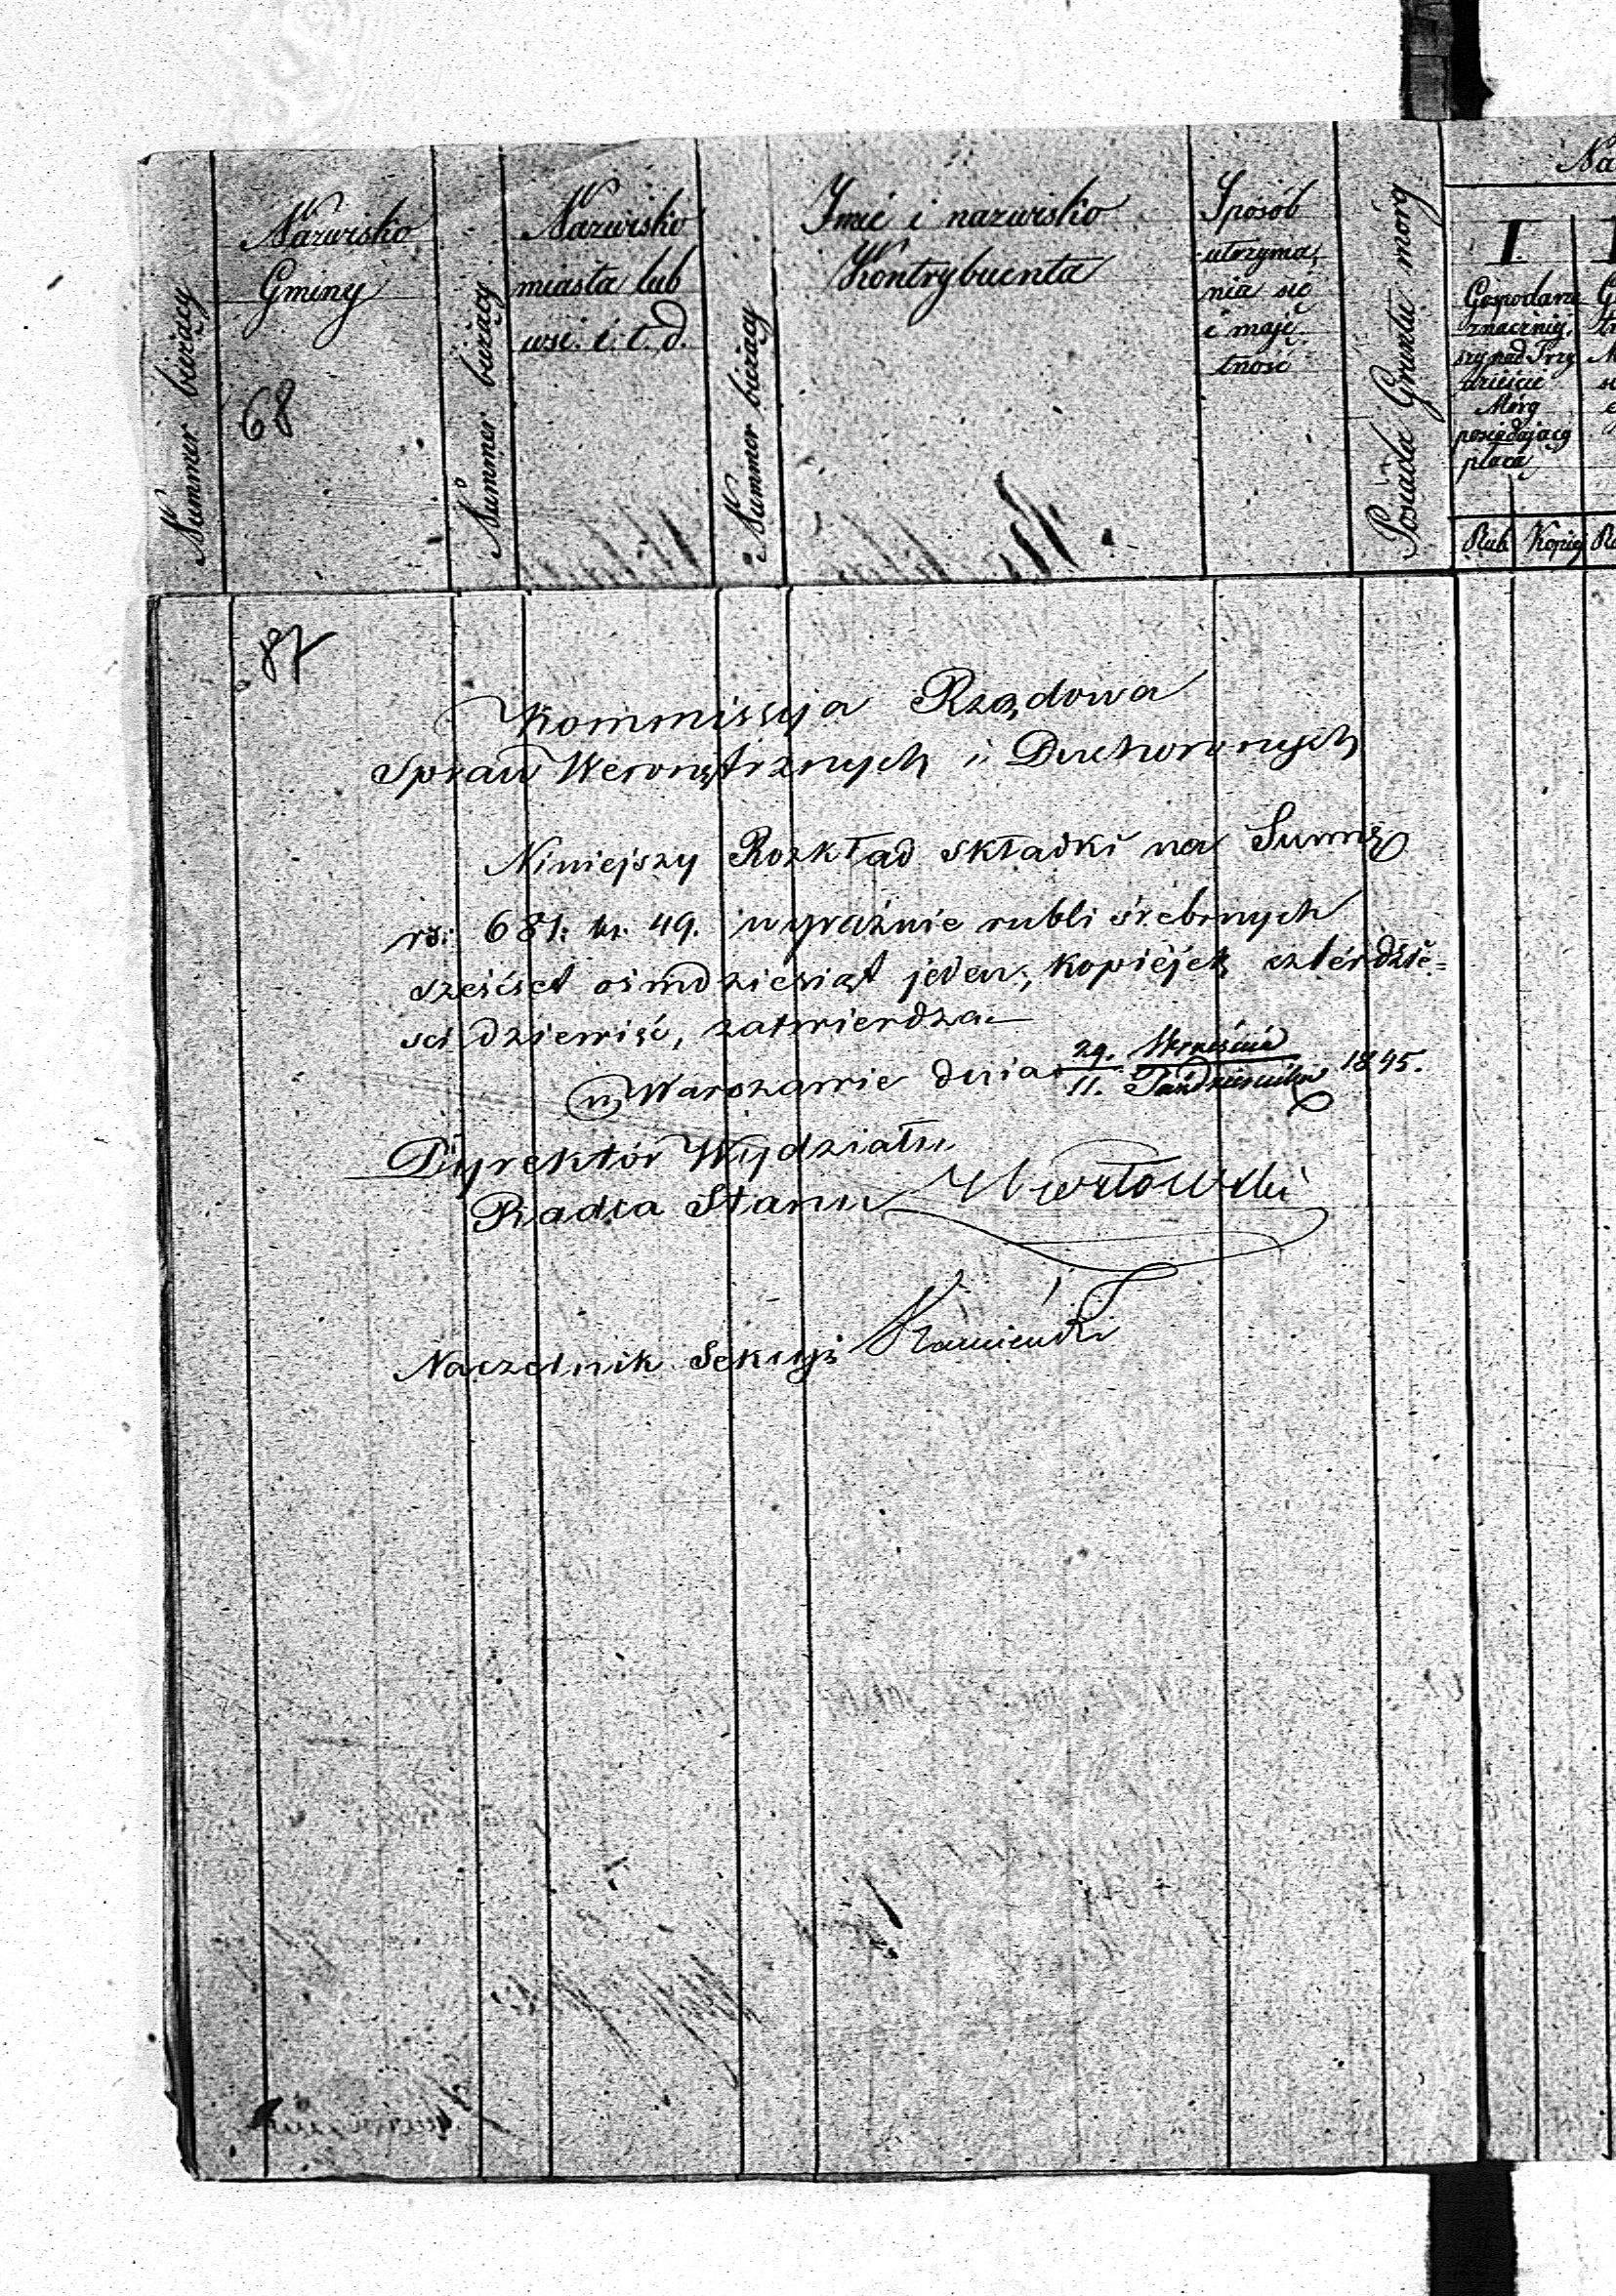 Nummer bieżący
Nazwisko
Gminy
68
Nummer bieżący
Nazwisko
miasta lub
wsi. i. t. d.
Nummer bieżący
Imie i nazwisko
Kontrybuenta
Sposób
utrzyma,
nia się
i maję.
tność
Posiada Gruntu morg
Na
I.
Gospodarz
znaczniej,
szy nad Trzy
dzieście
Mórg
posiadający
płaca
Rub Kopiej
87
Kommissyja Rządowa
Spraw Wewnętrznych i Duchownych
Niniejszy Rozkład składki na Summę
rs: 681: k. 49. wyraźnie rubli śrebrnych
sześćset ośmdziesiąt jeden, kopiéjek cztérdzie=
sci dziewięć, zatwierdza
w Warszawie dnia 29. Września
11. Października 1845.
Dyrektór Wydziału
Radca Stanu
Naczelnik Sekcyi Kamieński